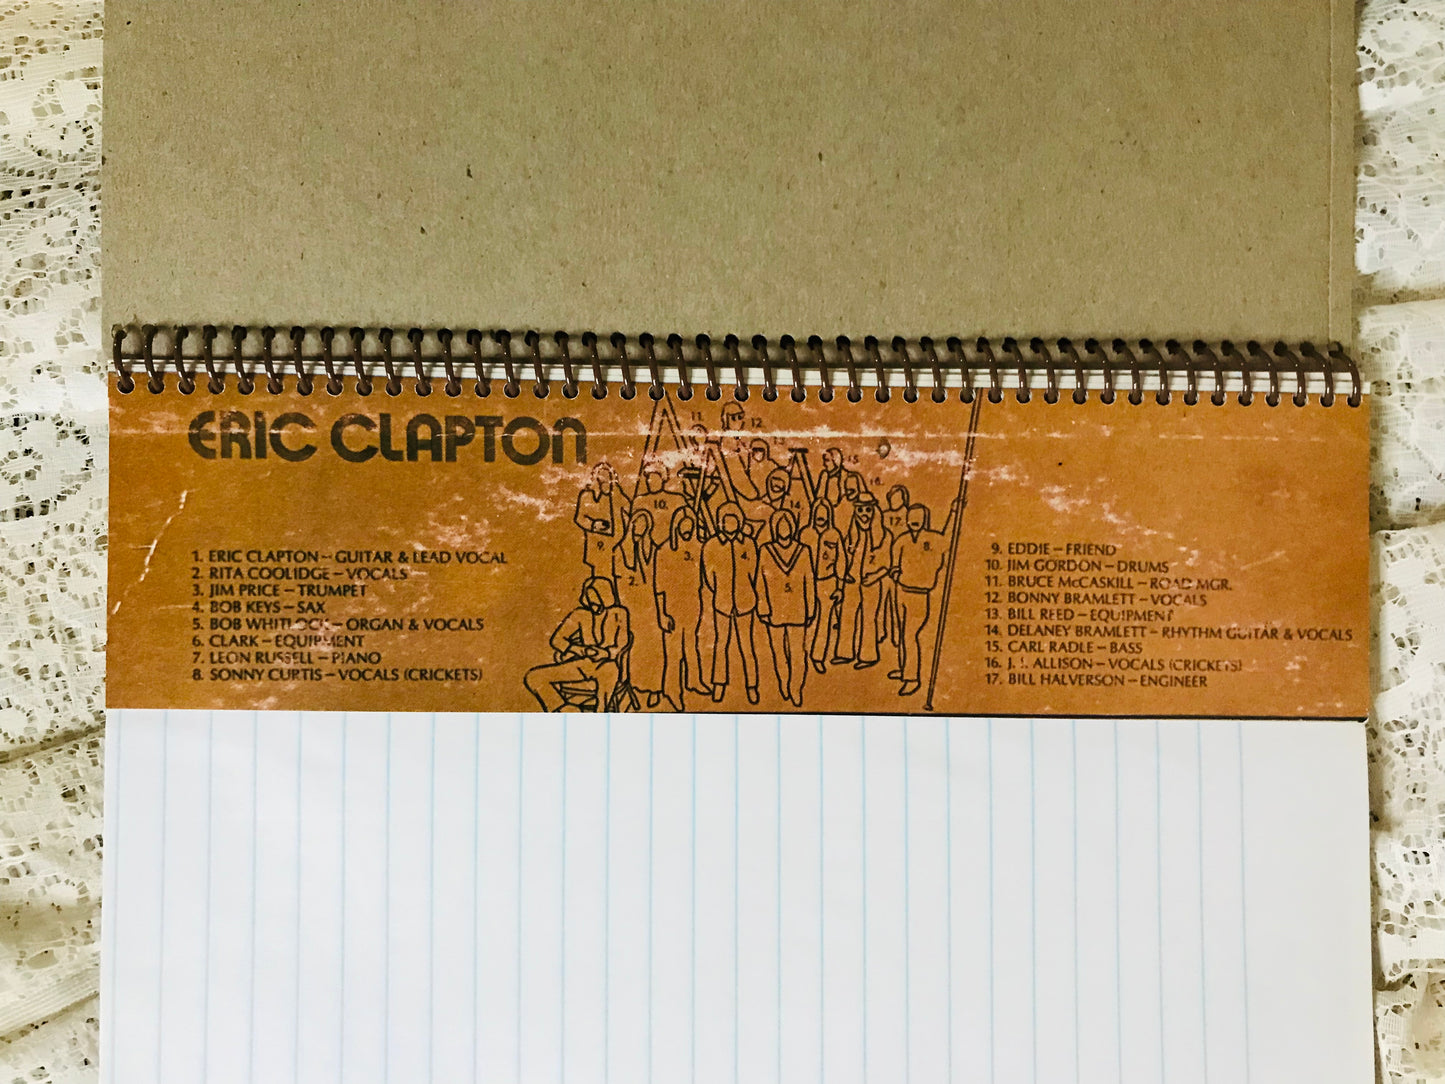 ERIC CLAPTON
1. ERIC CLAPTON – GUITAR & LEAD VOCAL
2. RITA COOLIDGE – VOCALS
3. JIM PRICE – TRUMPET
4. BOB KEYS – SAX
5. BOB WHITLOCK – ORGAN & VOCALS
6. CLARK – EQUIPMENT
7. LEON RUSSELL – PIANO
8. SONNY CURTIS – VOCALS (CRICKETS)
11.
12.
13.
15.
16.
10.
14.
17.
9.
3.
4.
6.
7.
8.
2.
5.
9. EDDIE – FRIEND
10. JIM GORDON – DRUMS
11. BRUCE McCASKILL – ROAD MGR.
12. BONNY BRAMLETT – VOCALS
13. BILL REED – EQUIPMENT
14. DELANEY BRAMLETT – RHYTHM GUITAR & VOCALS
15. CARL RADLE – BASS
16. J. I. ALLISON – VOCALS (CRICKETS)
17. BILL HALVERSON – ENGINEER